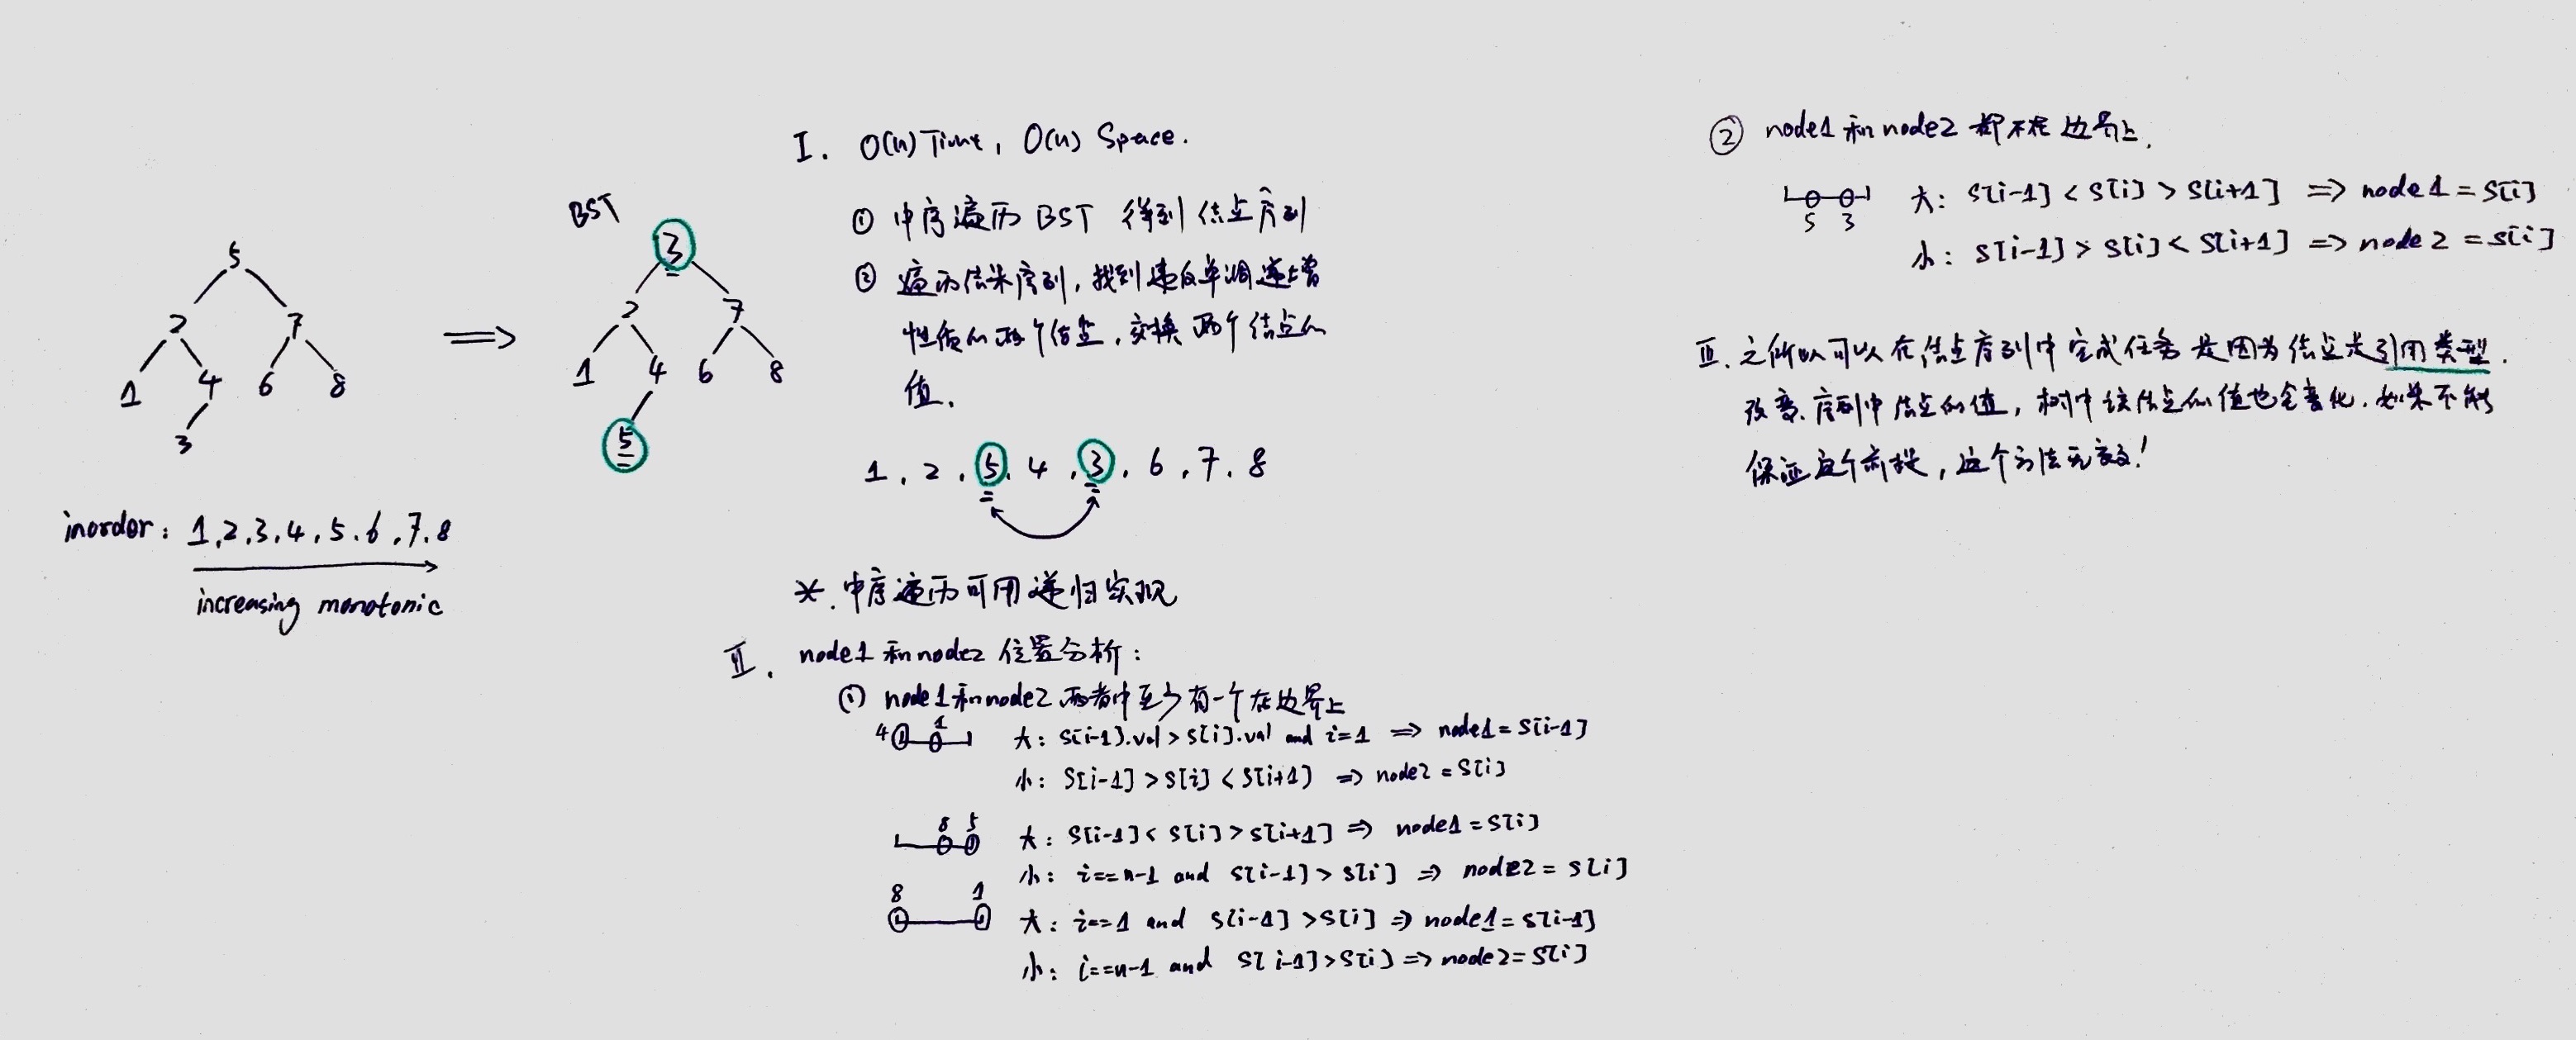 5
2 7
1 4 6 8
3
inorder: 1,2,3,4,5.6,7.8
increasing monotonic
BST
3
2 7
1 4 6 8
5
I. O(n) Time, O(n) Space.
① 中序遍历 BST 得到结点序列
② 遍历结果序列,找到违反单调递增
性质的两个结点,交换两个结点的
值.
1, 2, 5, 4, 3, 6, 7, 8
*. 中序遍历可用递归实现
II. node1 和 node2 位置分析:
① node1 和 node2 两者中至少有一个在边界上
4 1
大: S[i-1].val > S[i].val and i=1 ⇒ node1 = S[i-1]
小: S[i-1] > S[i] < S[i+1] ⇒ node2 = S[i]
8 5
大: S[i-1] < S[i] > S[i+1] ⇒ node1 = S[i]
小: i==n-1 and S[i-1] > S[i] ⇒ node2 = S[i]
8 1
大: i==1 and S[i-1] > S[i] ⇒ node1 = S[i-1]
小: i==n-1 and S[i-1] > S[i] ⇒ node2 = S[i]
② node1 和 node2 都不在边界上.
5 3
大: S[i-1] < S[i] > S[i+1] ⇒ node1 = S[i]
小: S[i-1] > S[i] < S[i+1] ⇒ node2 = S[i]
III. 之所以可以在结点序列中完成任务是因为结点是引用类型.
改变序列中结点的值, 树中该结点的值也会变化. 如果不能
保证这个前提, 这个方法无效!